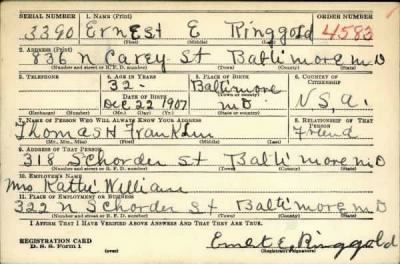 SERIAL NUMBER 1. NAME (Print) ORDER NUMBER
3390 Ernest E Ringgold 4583
(First) (Middle) (Last)
2. ADDRESS (Print)
836 N Carey St Baltimore MD
(Number and street or R. F. D. number) (Town) (County) (State)
3. TELEPHONE 4. AGE IN YEARS 5. PLACE OF BIRTH 6. COUNTRY OF CITIZENSHIP
32- Baltimore
DATE OF BIRTH (Town or county)
Dec 22 1907 MD U.S.A.
(Exchange) (No.) (Mo.) (Day) (Yr.) (State or country)
7. NAME OF PERSON WHO WILL ALWAYS KNOW YOUR ADDRESS 8. RELATIONSHIP OF THAT PERSON
Thomas H Franklin Friend
(Mr., Mrs., Miss) (First) (Middle) (Last)
9. ADDRESS OF THAT PERSON
318 Schorder St Baltimore MD
(Number and street or R. F. D. number) (Town) (County) (State)
10. EMPLOYER'S NAME
Mrs Kattie Williams
11. PLACE OF EMPLOYMENT OR BUSINESS
322 N Schorder St Baltimore MD
(Number and street or R. F. D. number) (Town) (County) (State)
I AFFIRM THAT I HAVE VERIFIED ABOVE ANSWERS AND THAT THEY ARE TRUE.
REGISTRATION CARD
D. S. S. Form 1 (over) Ernest E Ringgold
(Registrant's signature)